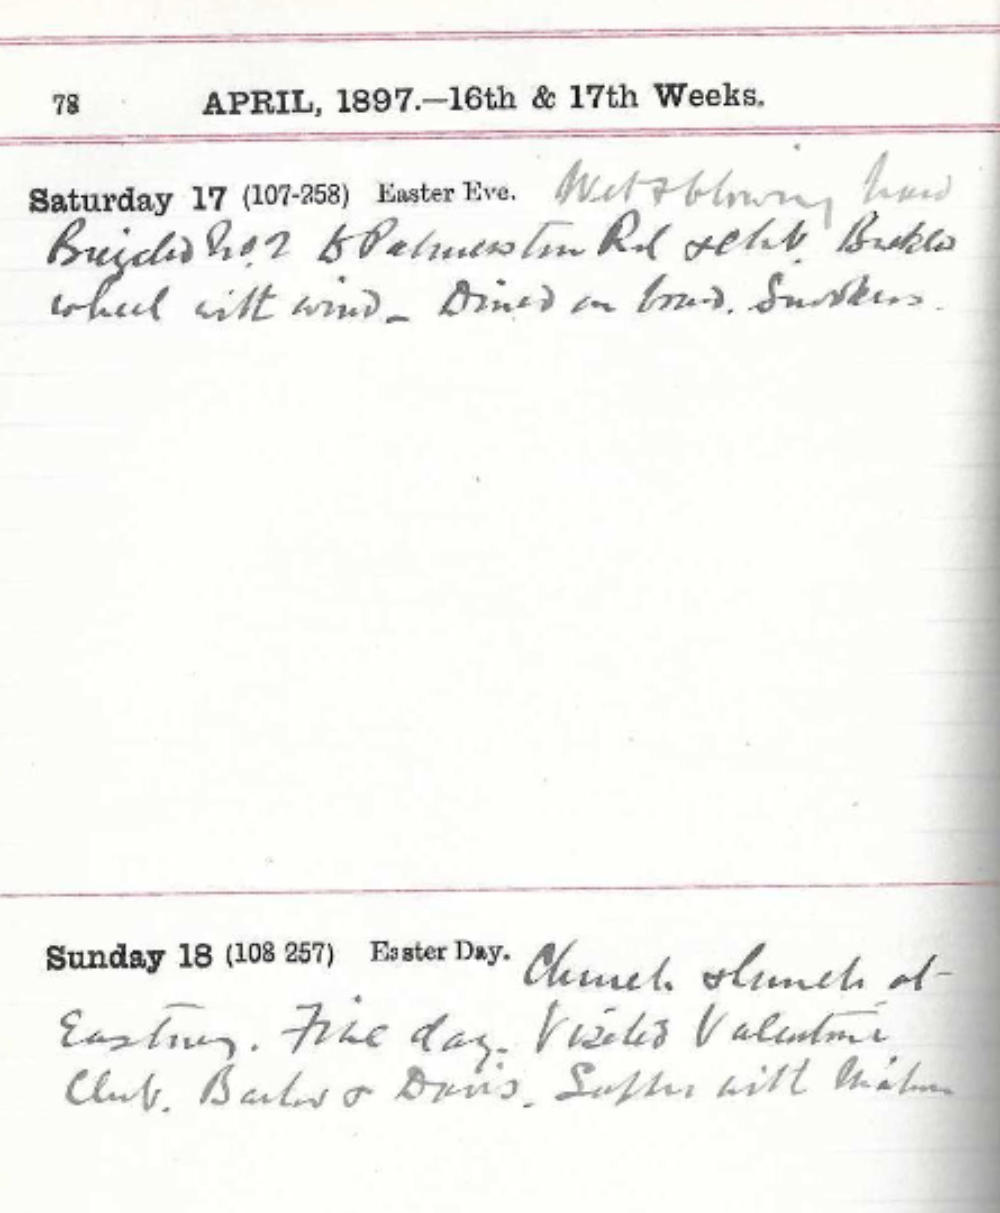 78 APRIL, 1897.—16th & 17th Weeks.
Saturday 17 (107-258) Easter Eve. Wet & blowing hard
Bicycled No. 2 to Palmerston Rd & Club.
wheel with wind – Dined on board. Smokers.
Sunday 18 (108 257) Easter Day. Church & lunch at
Eastney. Fine day. Visited Valentine
Club. Barlow & Davis. Supper with